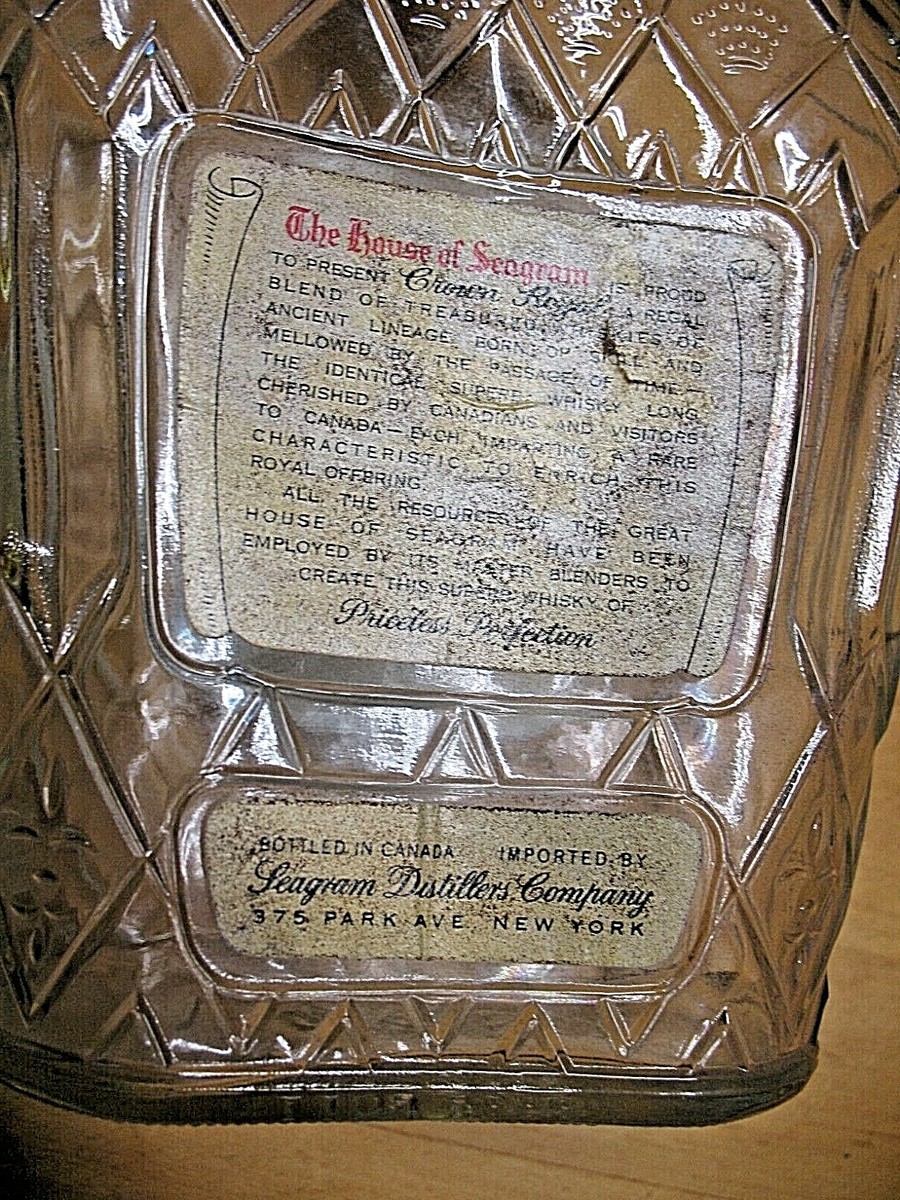 The House of Seagram IS PROUD
TO PRESENT Crown Royal A REGAL
BLEND OF TREASURED WHISKIES OF
ANCIENT LINEAGE, BORN OF SKILL AND
MELLOWED BY THE PASSAGE OF TIME—
THE IDENTICAL SUPERB WHISKY LONG
CHERISHED BY CANADIANS AND VISITORS
TO CANADA—EACH IMPARTING A RARE
CHARACTERISTIC TO ENRICH THIS
ROYAL OFFERING.
ALL THE RESOURCES OF THE GREAT
HOUSE OF SEAGRAM HAVE BEEN
EMPLOYED BY ITS MASTER BLENDERS TO
CREATE THIS SUPERB WHISKY OF
Priceless Perfection
BOTTLED IN CANADA IMPORTED BY
Seagram Distillers Company
375 PARK AVE NEW YORK